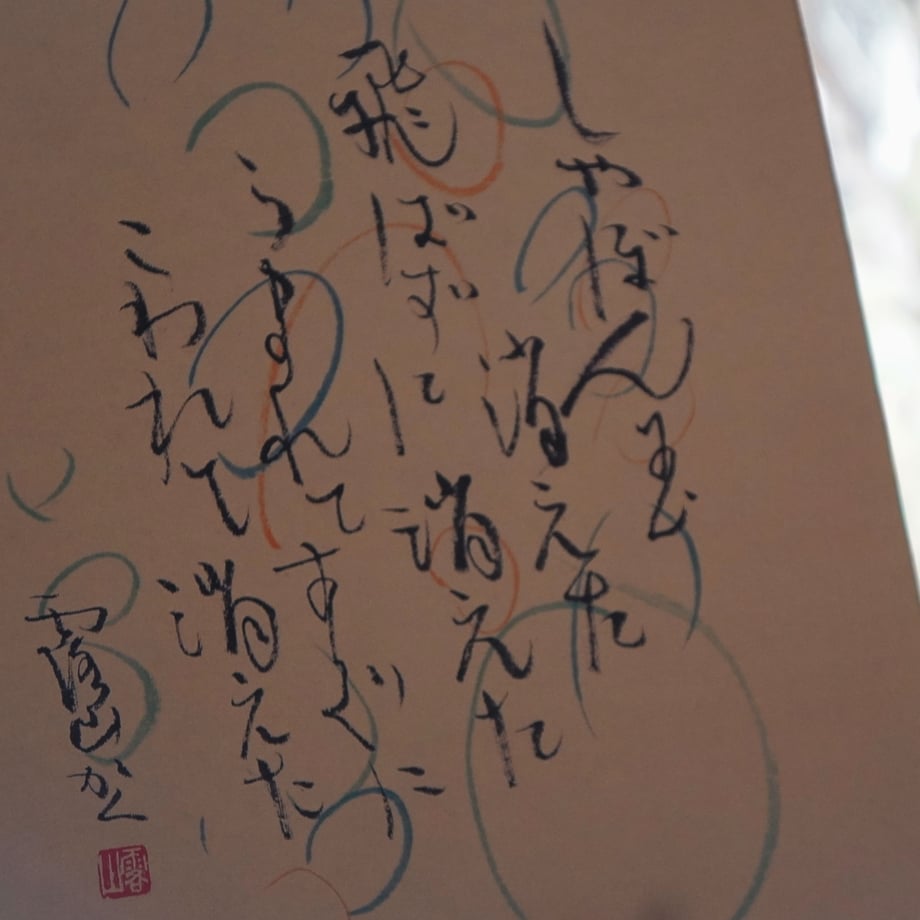 しゃぼん玉
消えた
飛ばずに消えた
うまれてすぐに
こわれて消えた
山かく